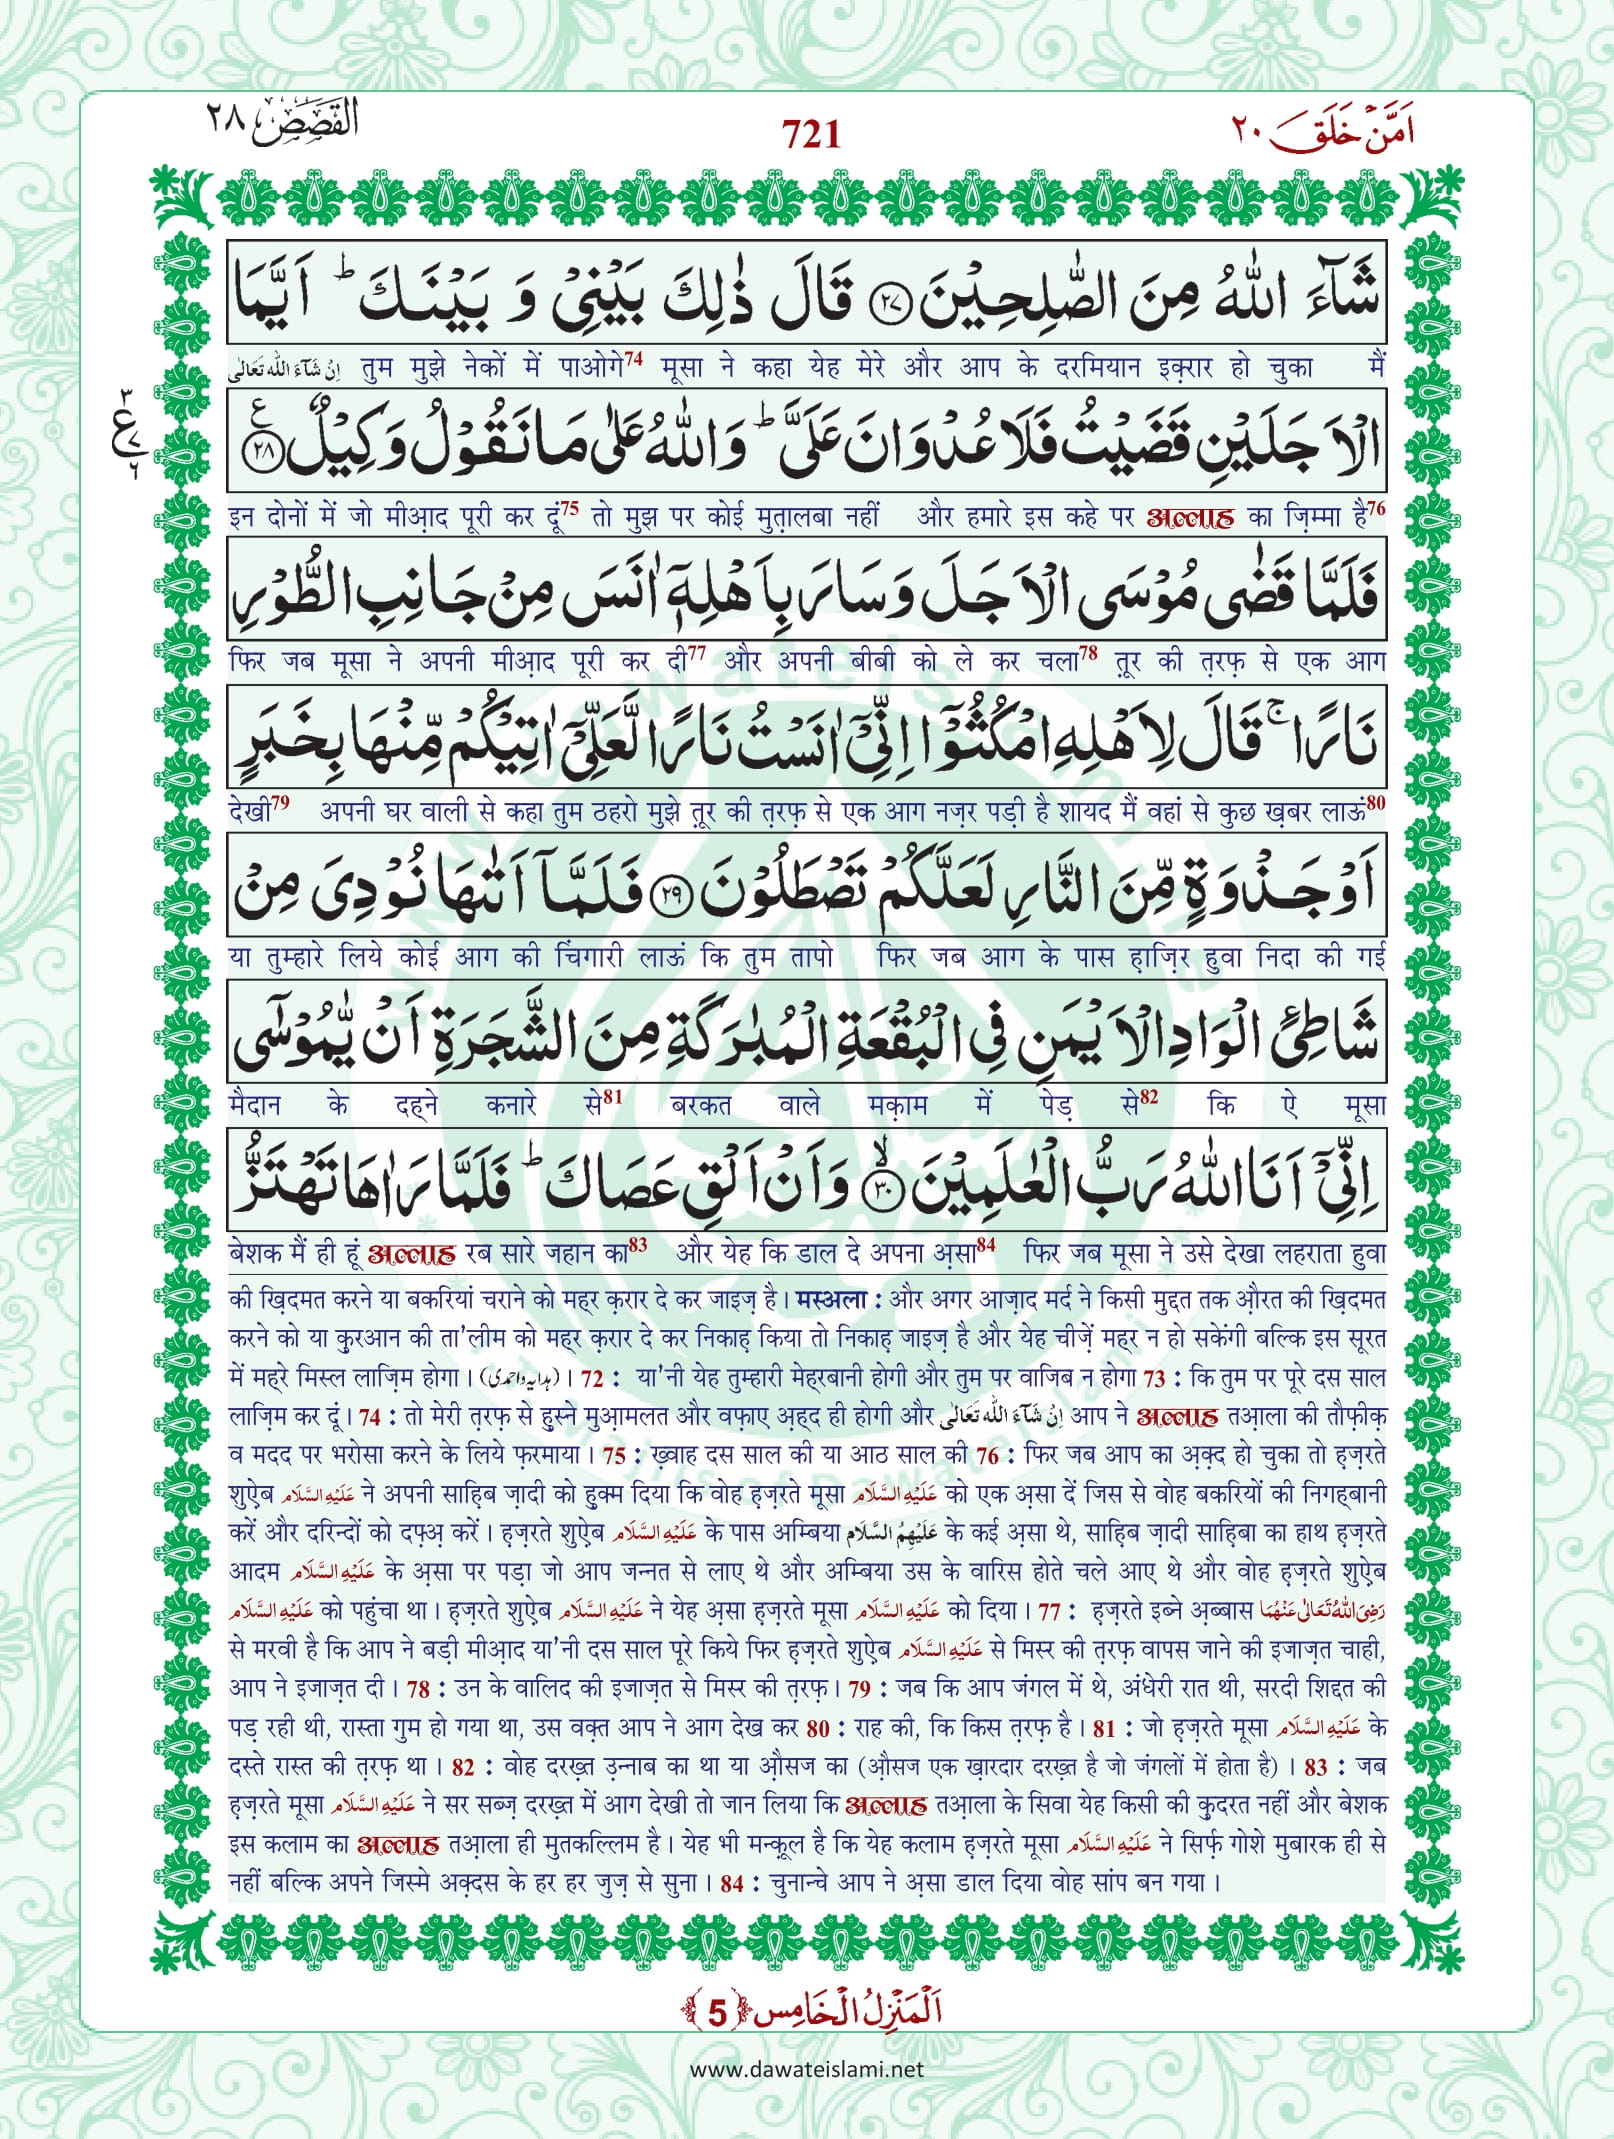 القصص ٢٨
721
اَمَّنْ خَلَقَ ٢٠
شَآءَ اللّٰهُ مِنَ الصّٰلِحِيْنَ ﴿٢٧﴾ قَالَ ذٰلِكَ بَيْنِيْ وَ بَيْنَكَ ؕ اَيَّمَا
اِنْ شَآءَ اللّٰه تَعَالٰی तुम मुझे नेकों में पाओगे74 मूसा ने कहा येह मेरे और आप के दरमियान इक़्रार हो चुका मैं
الْاَجَلَيْنِ قَضَيْتُ فَلَا عُدْوَانَ عَلَيَّ ؕ وَاللّٰهُ عَلٰى مَا نَقُوْلُ وَكِيْلٌ ﴿٢٨﴾
٣ ع ٧ ٦
इन दोनों में जो मीआ़द पूरी कर दूं75 तो मुझ पर कोई मुत़ालबा नहीं और हमारे इस कहे पर अल्लाह का ज़िम्मा है76
فَلَمَّا قَضٰى مُوْسَى الْاَجَلَ وَسَارَ بِاَهْلِهٖۤ اٰنَسَ مِنْ جَانِبِ الطُّوْرِ
फिर जब मूसा ने अपनी मीआ़द पूरी कर दी77 और अपनी बीबी को ले कर चला78 तूर की त़रफ़ से एक आग
نَارًا ۚ قَالَ لِاَهْلِهِ امْكُثُوْۤا اِنِّيْۤ اٰنَسْتُ نَارًا لَّعَلِّيْۤ اٰتِيْكُمْ مِّنْهَا بِخَبَرٍ
देखी79 अपनी घर वाली से कहा तुम ठहरो मुझे तूर की त़रफ़ से एक आग नज़र पड़ी है शायद मैं वहां से कुछ ख़बर लाऊं80
اَوْ جَذْوَةٍ مِّنَ النَّارِ لَعَلَّكُمْ تَصْطَلُوْنَ ﴿٢٩﴾ فَلَمَّاۤ اَتٰىهَا نُوْدِيَ مِنْ
या तुम्हारे लिये कोई आग की चिंगारी लाऊं कि तुम तापो फिर जब आग के पास ह़ाज़िर हुवा निदा की गई
شَاطِئِ الْوَادِ الْاَيْمَنِ فِي الْبُقْعَةِ الْمُبٰرَكَةِ مِنَ الشَّجَرَةِ اَنْ يّٰمُوْسٰۤى
मैदान के दहने कनारे से81 बरकत वाले मक़ाम में पेड़ से82 कि ऐ मूसा
اِنِّيْۤ اَنَا اللّٰهُ رَبُّ الْعٰلَمِيْنَ ۙ﴿٣٠﴾ وَاَنْ اَلْقِ عَصَاكَ ؕ فَلَمَّا رَاٰهَا تَهْتَزُّ
बेशक मैं ही हूं अल्लाह रब सारे जहान का83 और येह कि डाल दे अपना अ़सा84 फिर जब मूसा ने उसे देखा लहराता हुवा
की ख़िदमत करने या बकरियां चराने को महर क़रार दे कर जाइज़ है। मस्अला : और अगर आज़ाद मर्द ने किसी मुद्दत तक औ़रत की ख़िदमत
करने को या क़ुरआन की ता'लीम को महर क़रार दे कर निकाह़ किया तो निकाह़ जाइज़ है और येह चीज़ें महर न हो सकेंगी बल्कि इस सूरत
में महरे मिस्ल लाज़िम होगा। (ہدایہ واحمدی)। 72 : या'नी येह तुम्हारी मेहरबानी होगी और तुम पर वाजिब न होगा 73 : कि तुम पर पूरे दस साल
लाज़िम कर दूं। 74 : तो मेरी त़रफ़ से हुस्ने मुआ़मलत और वफ़ाए अ़हद ही होगी और اِنْ شَآءَ اللّٰه تَعَالٰی आप ने अल्लाह तआ़ला की तौफ़ीक़
व मदद पर भरोसा करने के लिये फ़रमाया। 75 : ख़्वाह दस साल की या आठ साल की 76 : फिर जब आप का अ़क़्द हो चुका तो ह़ज़रते
शुऐ़ब عَلَيْهِ السَّلَام ने अपनी साह़िब ज़ादी को हुक्म दिया कि वोह ह़ज़रते मूसा عَلَيْهِ السَّلَام को एक अ़सा दें जिस से वोह बकरियों की निगहबानी
करें और दरिन्दों को दफ़्अ़ करें। ह़ज़रते शुऐ़ब عَلَيْهِ السَّلَام के पास अम्बिया عَلَيْهِمُ السَّلَام के कई अ़सा थे, साह़िब ज़ादी साह़िबा का हाथ ह़ज़रते
आदम عَلَيْهِ السَّلَام के अ़सा पर पड़ा जो आप जन्नत से लाए थे और अम्बिया उस के वारिस होते चले आए थे और वोह ह़ज़रते शुऐ़ब
عَلَيْهِ السَّلَام को पहुंचा था। ह़ज़रते शुऐ़ब عَلَيْهِ السَّلَام ने येह अ़सा ह़ज़रते मूसा عَلَيْهِ السَّلَام को दिया। 77 : ह़ज़रते इब्ने अ़ब्बास رَضِیَ اللّٰهُ تَعَالٰی عَنْهُمَا
से मरवी है कि आप ने बड़ी मीआ़द या'नी दस साल पूरे किये फिर ह़ज़रते शुऐ़ब عَلَيْهِ السَّلَام से मिस्र की त़रफ़ वापस जाने की इजाज़त चाही,
आप ने इजाज़त दी। 78 : उन के वालिद की इजाज़त से मिस्र की त़रफ़। 79 : जब कि आप जंगल में थे, अंधेरी रात थी, सरदी शिद्दत की
पड़ रही थी, रास्ता गुम हो गया था, उस वक़्त आप ने आग देख कर 80 : राह की, कि किस त़रफ़ है। 81 : जो ह़ज़रते मूसा عَلَيْهِ السَّلَام के
दस्ते रास्त की त़रफ़ था। 82 : वोह दरख़्त उ़न्नाब का था या औ़सज का (औ़सज एक ख़ारदार दरख़्त है जो जंगलों में होता है)। 83 : जब
ह़ज़रते मूसा عَلَيْهِ السَّلَام ने सर सब्ज़ दरख़्त में आग देखी तो जान लिया कि अल्लाह तआ़ला के सिवा येह किसी की क़ुदरत नहीं और बेशक
इस कलाम का अल्लाह तआ़ला ही मुतकल्लिम है। येह भी मन्क़ूल है कि येह कलाम ह़ज़रते मूसा عَلَيْهِ السَّلَام ने सिर्फ़ गोशे मुबारक ही से
नहीं बल्कि अपने जिस्मे अक़्दस के हर हर जुज़ से सुना। 84 : चुनान्चे आप ने अ़सा डाल दिया वोह सांप बन गया।
اَلْمَنْزِلُ الْخَامِس ﴿5﴾
www.dawateislami.net